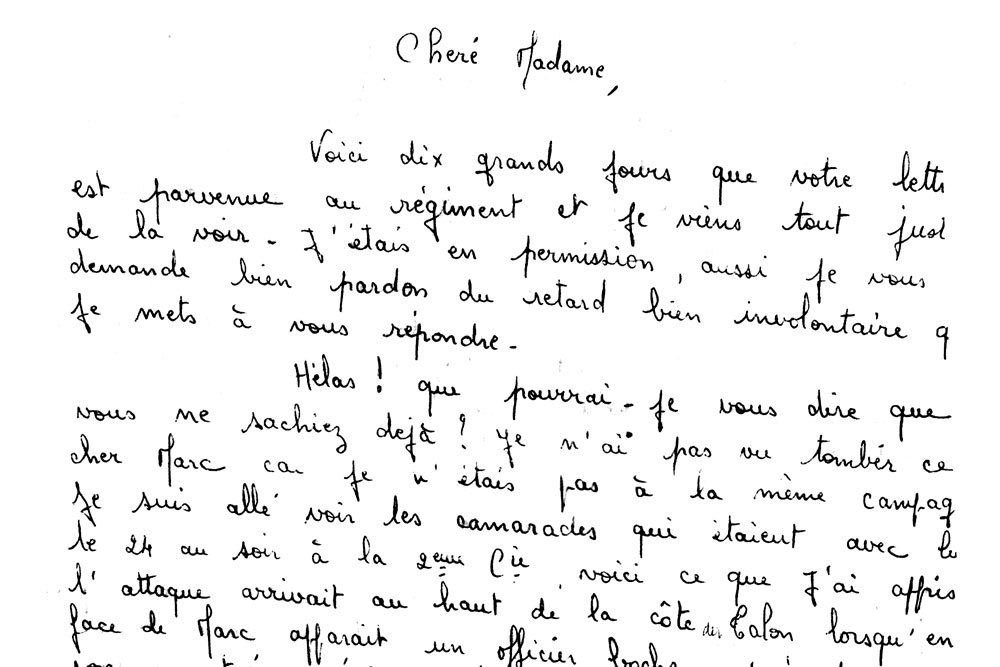 Cheré Madame,
Voici dix grands jours que votre lettr
est parvenue au régiment et je viens tout just
de la voir - J'étais en permission, aussi je vous
demande bien pardon du retard bien involontaire q
je mets à vous répondre -
Hélas ! que pourrai-je vous dire que
vous ne sachiez dejà ? Je n'ai pas vu tombér ce
cher Marc car je n'étais pas à la même campag
Je suis allé voir les camarades qui étaient avec lu
le 24 au soir à la 2eme Cie voici ce que J'ai appris
l'attaque arrivait au haut de la côte du Talon lorsqu'en
face de Marc apparait un officier boche